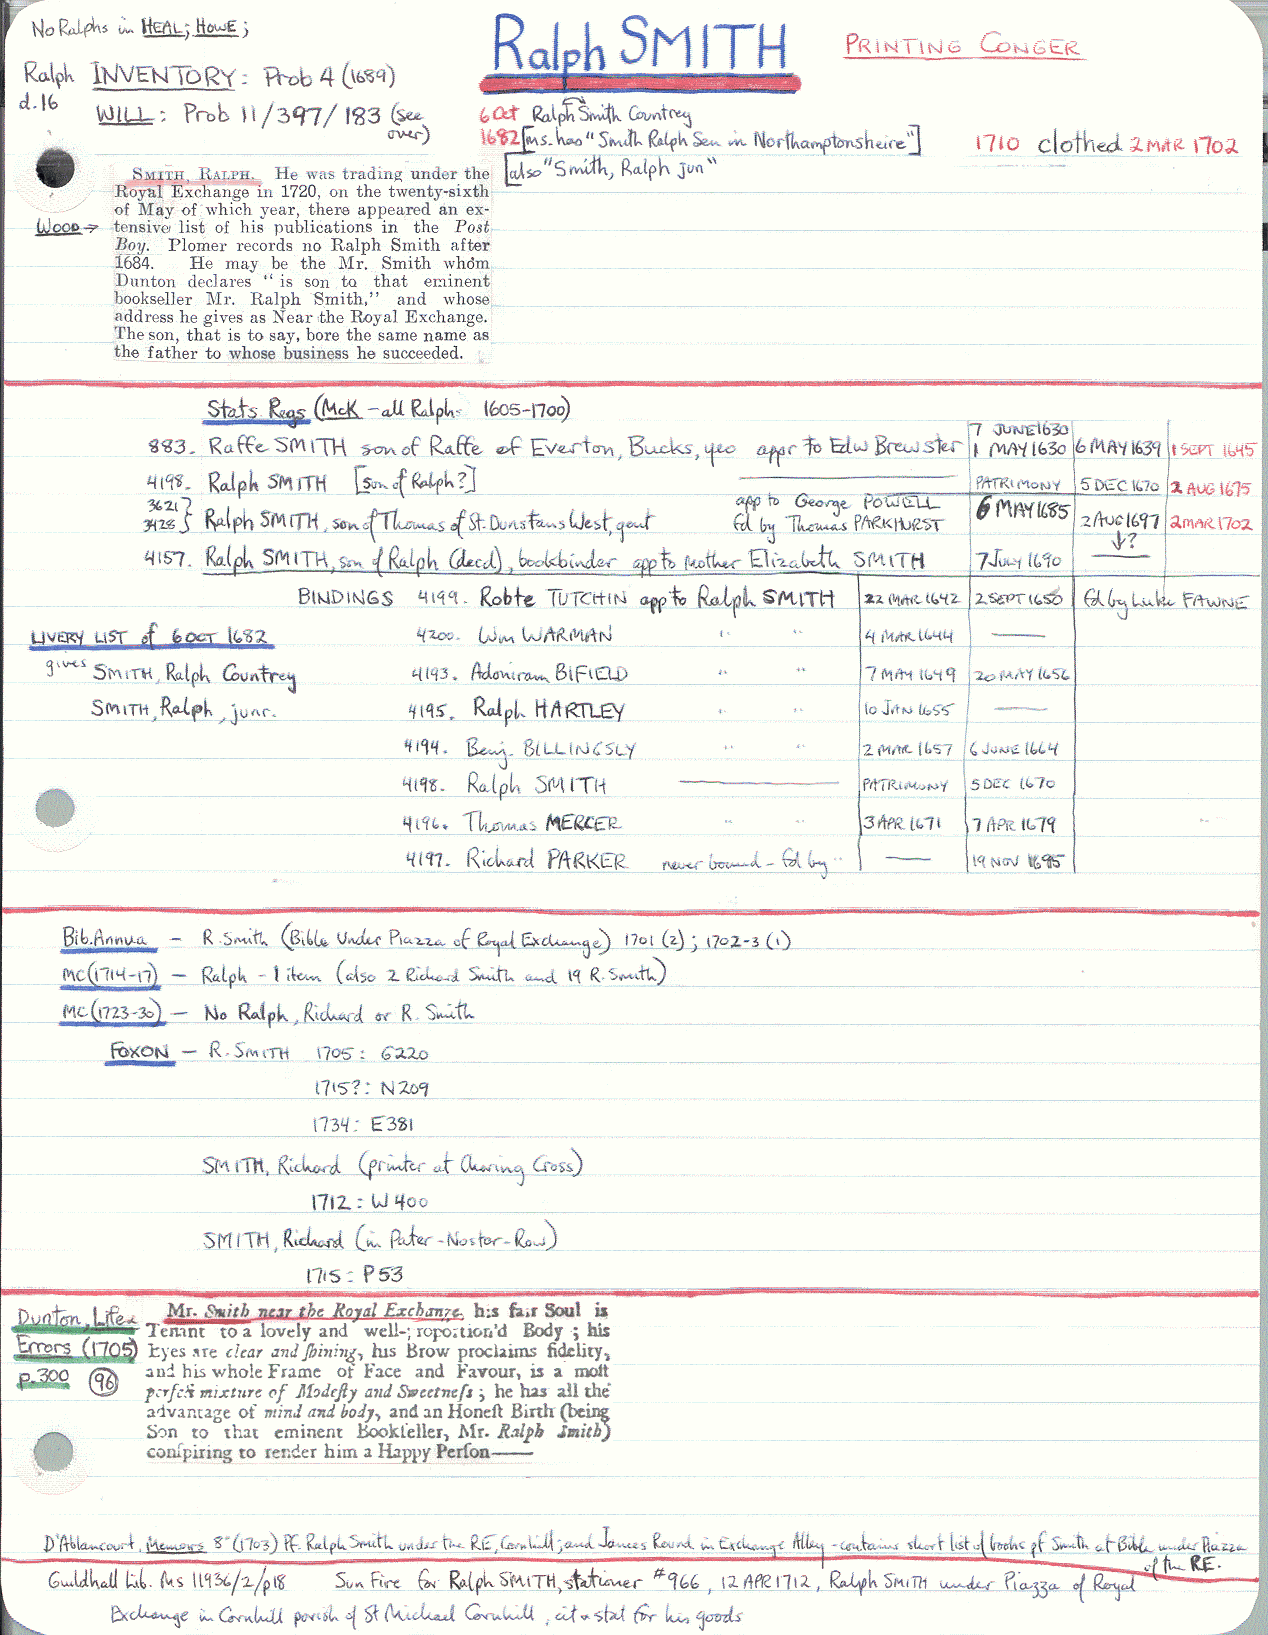 No Ralphs in HEAL; HOWE;
Ralph SMITH
PRINTING CONGER
Ralph INVENTORY: Prob 4 (1689)
d.16
WILL: Prob 11/397/183 (see over)
6 Oct Ralph Smith Countrey
1682 [ms. has "Smith Ralph Sen in Northamptonsheire"]
[also "Smith, Ralph jun"
1710 clothed 2 MAR 1702
WOOD →
SMITH, RALPH. He was trading under the
Royal Exchange in 1720, on the twenty-sixth
of May of which year, there appeared an ex-
tensive list of his publications in the Post
Boy. Plomer records no Ralph Smith after
1684. He may be the Mr. Smith whom
Dunton declares " is son to that eminent
bookseller Mr. Ralph Smith," and whose
address he gives as Near the Royal Exchange.
The son, that is to say, bore the same name as
the father to whose business he succeeded.
Stats Regs (McK - all Ralphs 1605-1700)
7 JUNE 1630
883. Raffe SMITH son of Raffe of Everton, Bucks, yeo appr to Edw Brewster 1 MAY 1630 6 MAY 1639 1 SEPT 1645
4198. Ralph SMITH [son of Ralph?] PATRIMONY 5 DEC 1670 2 AUG 1675
3621 } app to George POWELL 6 MAY 1685
3428 } Ralph SMITH, son of Thomas of St. Dunstans West, gent fd by Thomas PARKHURST 2 AUG 1697 2 MAR 1702
↓?
4157. Ralph SMITH, son of Ralph (decd), bookbinder app to mother Elizabeth SMITH 7 July 1690
BINDINGS 4199. Robte TUTCHIN app to Ralph SMITH 22 MAR 1642 2 SEPT 1650 fd by Luke FAWNE
LIVERY LIST of 6 OCT 1682
4200. Wm WARMAN " " 4 MAR 1644 —
gives SMITH, Ralph Countrey
4193. Adoniram BIFIELD " " 7 MAY 1649 20 MAY 1656
SMITH, Ralph, junr.
4195. Ralph HARTLEY " " 10 JAN 1655 —
4194. Benj. BILLINGSLY " " 2 MAR 1657 6 JUNE 1664
4198. Ralph SMITH — PATRIMONY 5 DEC 1670
4196. Thomas MERCER " " 3 APR 1671 7 APR 1679
4197. Richard PARKER never bound - fd by " — 19 NOV 1695
Bib. Annua - R. Smith (Bible Under Piazza of Royal Exchange) 1701 (2); 1702-3 (1)
MC (1714-17) - Ralph - 1 item (also 2 Richard Smith and 19 R. Smith)
MC (1723-30) - No Ralph, Richard or R. Smith
FOXON - R. SMITH 1705: G220
1715?: N209
1734: E381
SMITH, Richard (printer at Charing Cross)
1712: W400
SMITH, Richard (in Pater-Noster-Row)
1715: P53
Dunton, Life &
Errors (1705)
p.300 (96)
Mr. Smith near the Royal Exchange, his fair Soul is
Tenant to a lovely and well-proportion'd Body ; his
Eyes are clear and ſhining, his Brow proclaims fidelity,
and his whole Frame of Face and Favour, is a moſt
perfect mixture of Modeſty and Sweetneſs ; he has all the
advantage of mind and body, and an Honeſt Birth (being
Son to that eminent Bookſeller, Mr. Ralph Smith)
conſpiring to render him a Happy Perſon——
D'Ablancourt, Memoirs 8° (1703) Pf. Ralph Smith under the RE, Cornhill; and James Round in Exchange Alley - contains short list of books pf Smith at Bible under Piazza
of the RE.
Guildhall Lib. Ms 11936/2/p18 Sun Fire for Ralph SMITH, stationer #966, 12 APR 1712, Ralph SMITH under Piazza of Royal
Exchange in Cornhill parish of St Michael Cornhill, cit & stat for his goods